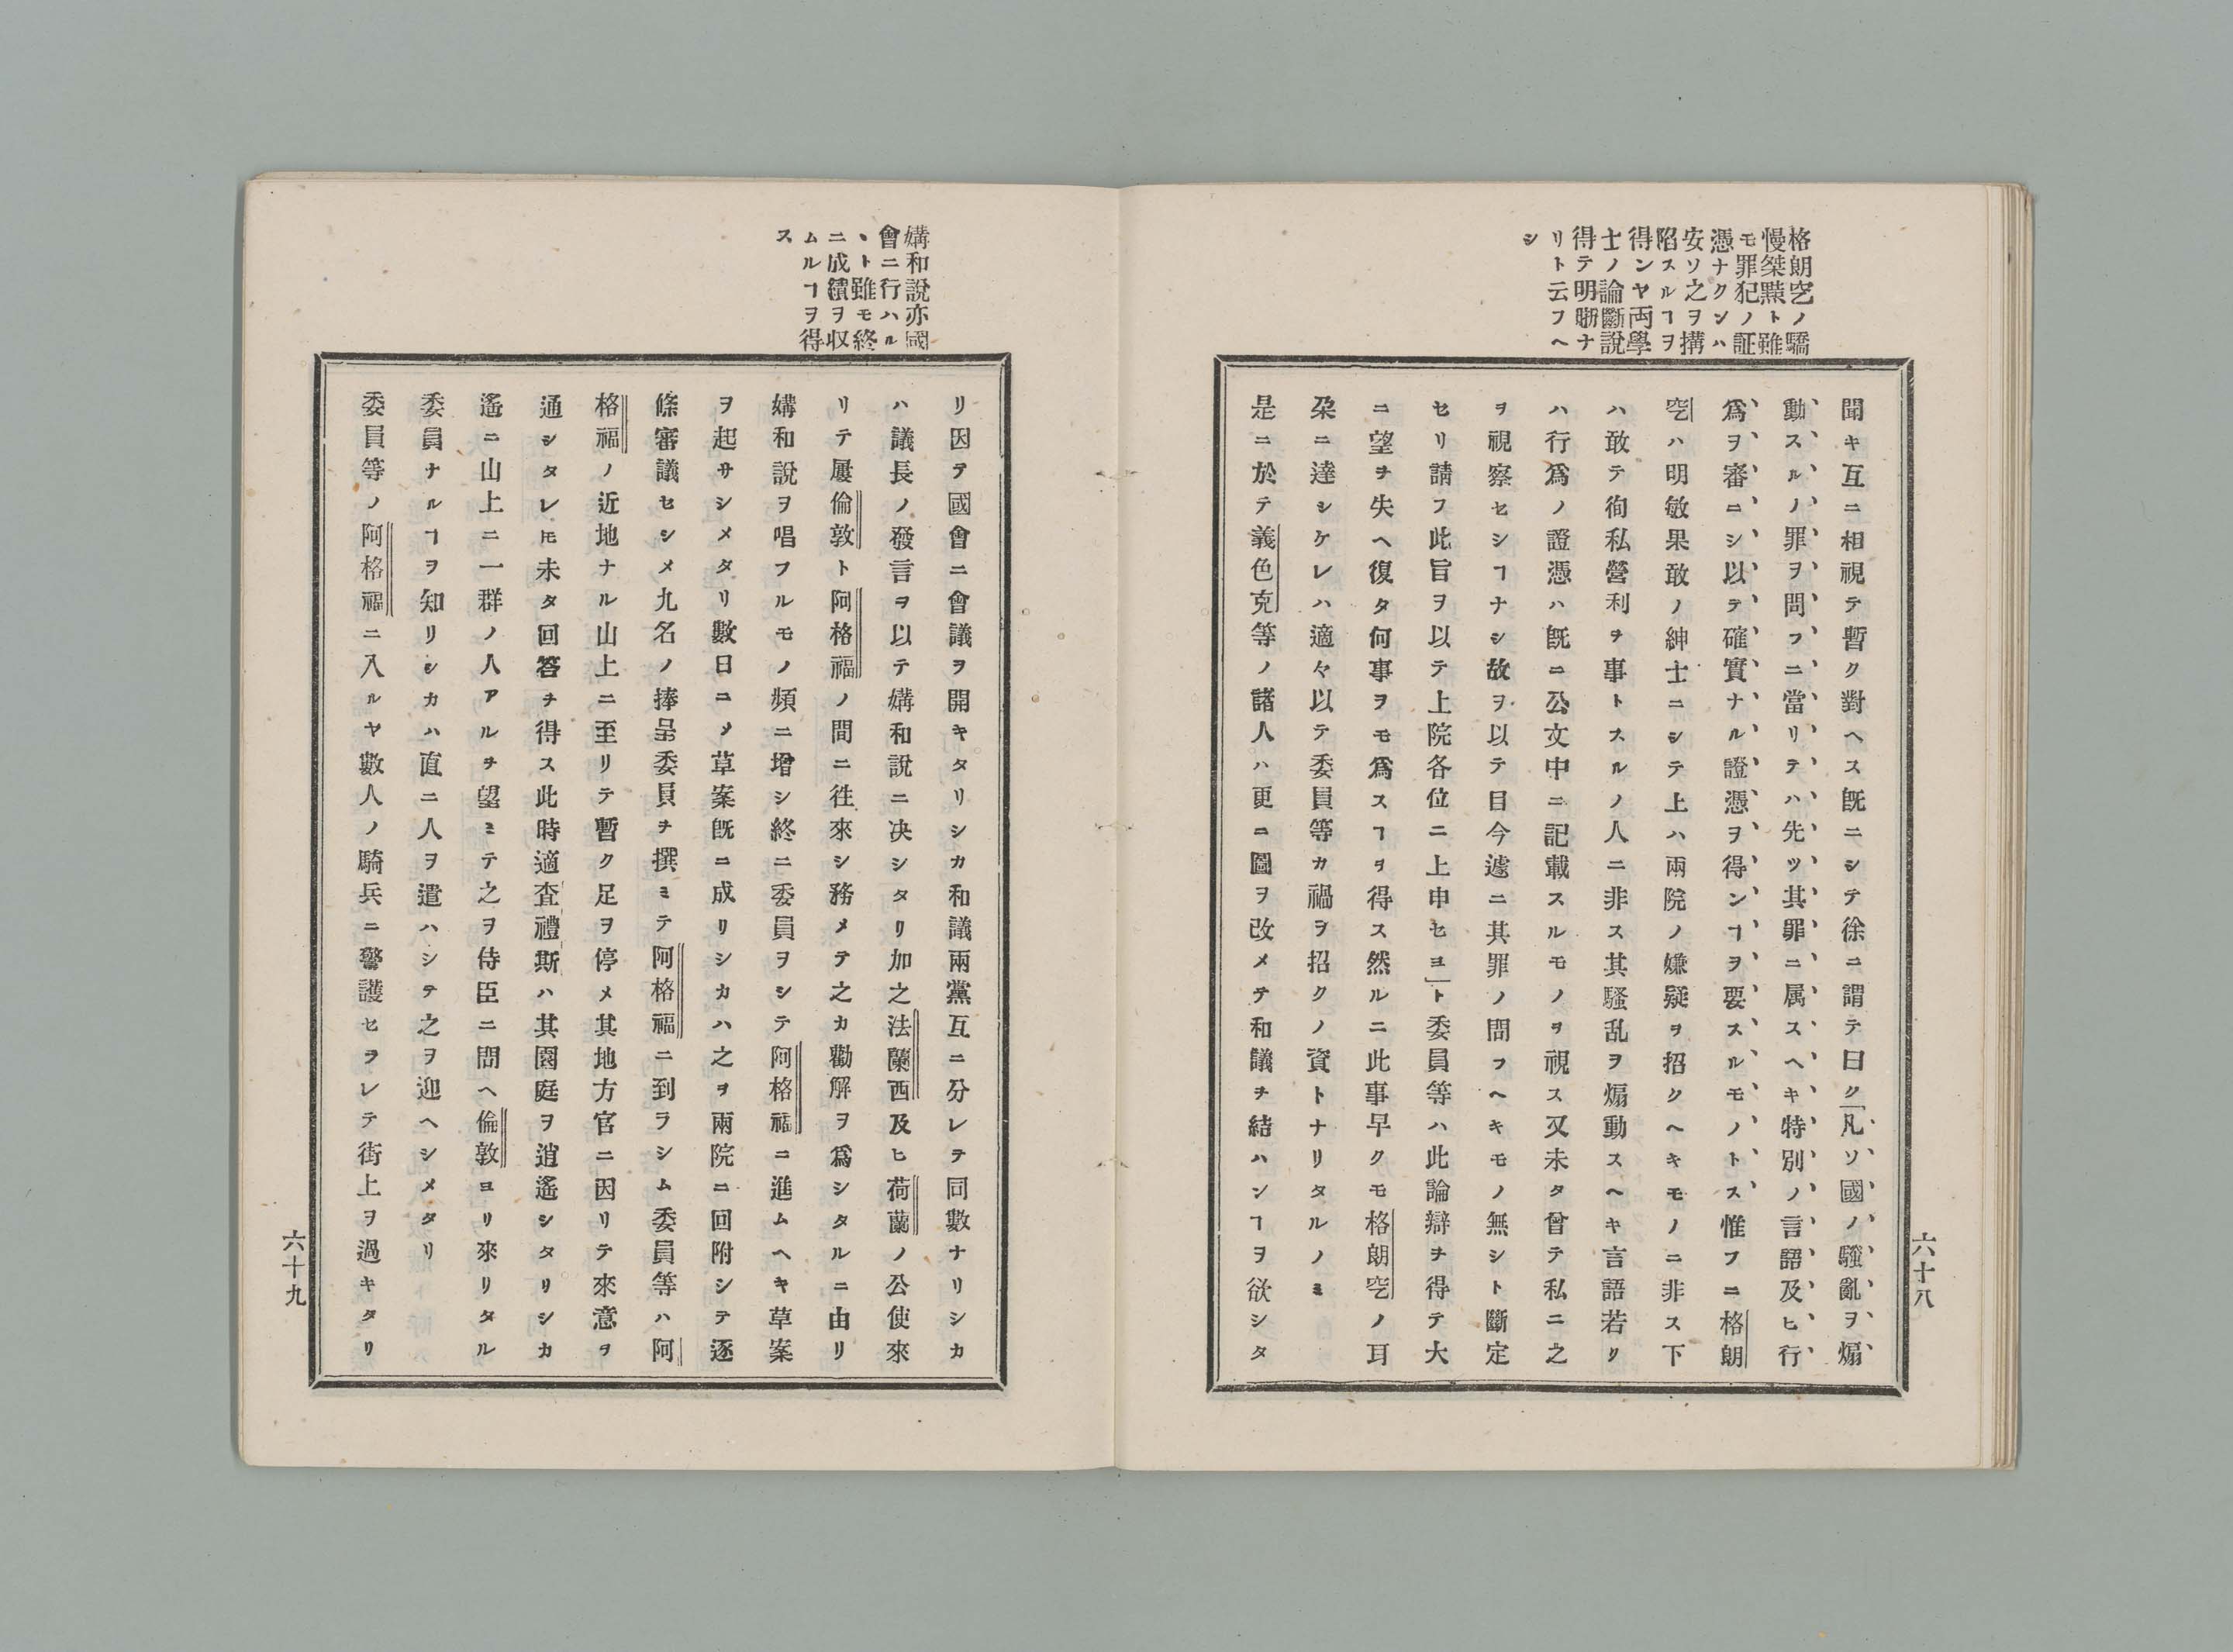 格朗空ノ驕
慢桀黠ト雖
モ罪犯ノ証
憑ナクンハ
安ソ之ヲ搆
陷スルヿヲ
得ンヤ両學
士ノ論斷説
得テ明晣ナ
リト云フヘ
シ
聞キ互ニ相視テ暫ク對ヘス既ニシテ徐ニ謂テ曰ク「凡ソ國ノ騷亂ヲ煽
動スルノ罪ヲ問フニ當リテハ先ツ其罪ニ属スヘキ特別ノ言語及ヒ行
爲ヲ審ニシ以テ確實ナル證憑ヲ得ンヿヲ要スルモノトス惟フニ格朗
空ハ明敏果敢ノ紳士ニシテ上ハ兩院ノ嫌疑ヲ招クヘキモノニ非ス下
ハ敢テ徇私營利ヲ事トスルノ人ニ非ス其騷乱ヲ煽動スヘキ言語若リ
ハ行爲ノ證憑ハ既ニ公文中ニ記載スルモノヲ視ス又未タ曾テ私ニ之
ヲ視察セシヿナシ故ヲ以テ目今遽ニ其罪ノ問フヘキモノ無シト斷定
セリ請フ此旨ヲ以テ上院各位ニ上申セヨ」ト委員等ハ此論辯ヲ得テ大
ニ望ヲ失ヘ復タ何事ヲモ爲スヿヲ得ス然ルニ此事早クモ格朗空ノ耳
朶ニ達シケレハ適々以テ委員等カ禍ヲ招クノ資トナリタルノミ
是ニ於テ義色克等ノ諸人ハ更ニ圖ヲ改メテ和議ヲ結ハンヿヲ欲シタ
六十八
媾和說亦國
會ニ行ハル
ヽト雖モ終
ニ成績ヲ収
ムルヿヲ得
ス
リ因テ國會ニ會議ヲ開キタリシカ和議兩黨互ニ分レテ同數ナリシカ
ハ議長ノ發言ヲ以テ媾和說ニ决シタリ加之法蘭西及ヒ荷蘭ノ公使來
リテ屢倫敦ト阿格福ノ間ニ徃來シ務メテ之カ勸解ヲ爲シタルニ由リ
媾和說ヲ唱フルモノ頻ニ增シ終ニ委員ヲシテ阿格福ニ進ムヘキ草案
ヲ起サシメタリ數日ニ〆草案既ニ成リシカハ之ヲ兩院ニ回附シテ逐
條審議セシメ九名ノ捧呈委員ヲ撰ミテ阿格福ニ到ラシム委員等ハ阿
格福ノ近地ナル山上ニ至リテ暫ク足ヲ停メ其地方官ニ因リテ來意ヲ
通シタレ𪜈未タ回答ヲ得ス此時適査禮斯ハ其園庭ヲ逍遙シタリシカ
遙ニ山上ニ一群ノ人アルヲ望ミテ之ヲ侍臣ニ問ヘ倫敦ヨリ來リタル
委員ナルヿヲ知リシカハ直ニ人ヲ遣ハシテ之ヲ迎ヘシメタリ
委員等ノ阿格福ニ入ルヤ數人ノ騎兵ニ警護セヲレテ街上ヲ過キタリ
六十九